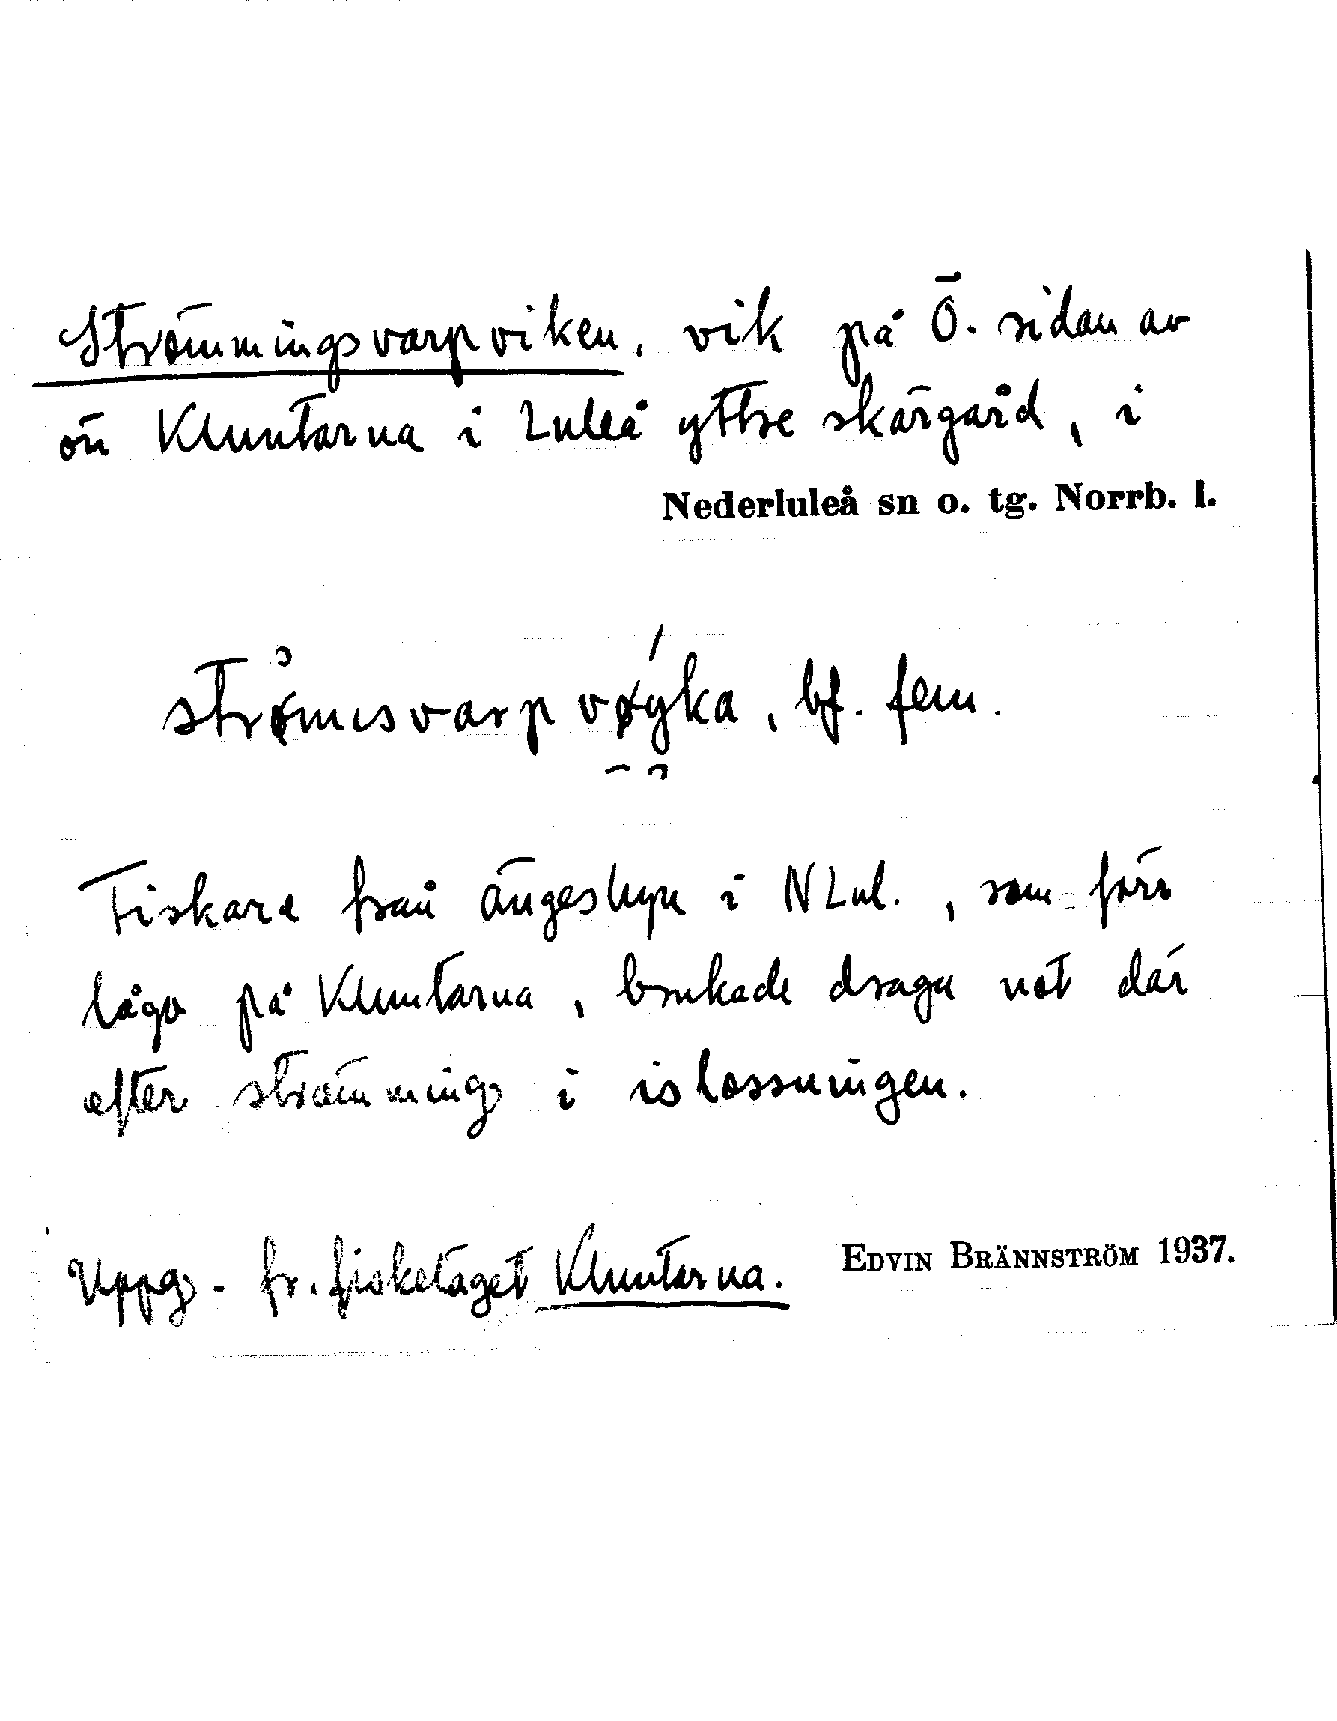 Strömmingsvarpviken, vik på Ö. sidan av
ön Kluntarna i Luleå yttre skärgård, i
Nederluleå sn o. tg. Norrb. l.
bf. fem.
Fiskare från Ängesbyn i NLul., som förr
lågo på Kluntarna, brukade draga not där
efter strömming i islossningen.
Uppg. fr. fiskeläget Kluntarna. EDVIN BRÄNNSTRÖM 1937.